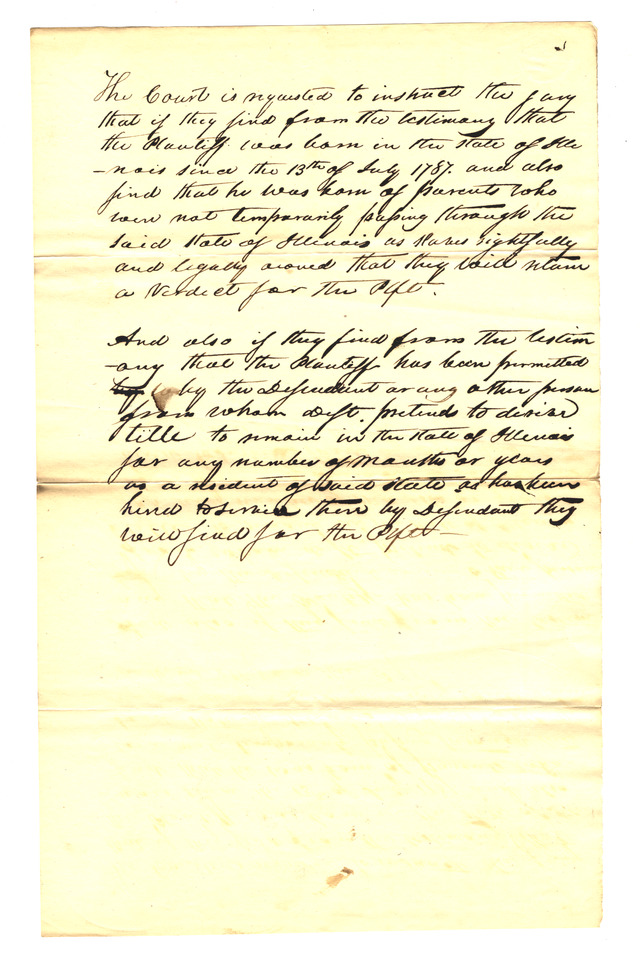 The Court is requested to instruct the jury
that if they find from the testimony that
the Plantiff was born in the state of Ille
-nois since the 13th of July 1787. and also
find that he was born of parents who
were not temporarily passing through the
said State of Illenois as slaves rightfully
and legally owned that they will return
a Verdict for the Plft.
And also if they find from the testim
-ony that the Plantiff has been permitted
by the Defendant or any other person
from whom Deft. pretends to derive
title to remain in the state of Illenois
for any number of Months or years
as a resident of said state or has been
hired to service there by Defendant they
will find for the Plft—